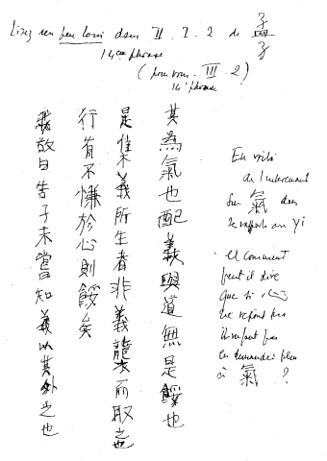 un peu loin dans II. I. 2 de 孟子
phrase
(pour vous III. 2)
phrase
其為氣也配義與道無是餒也
是集義所生者非義襲而取之也
行有不慊於心則餒矣
我故曰告子未嘗知義以其外之也
En voilà
de l'interessant
sur 氣 dans
rapports au Yi
et comment
peut il dire
que si
ne repond pas
faut pas
le demander
à 氣 ?